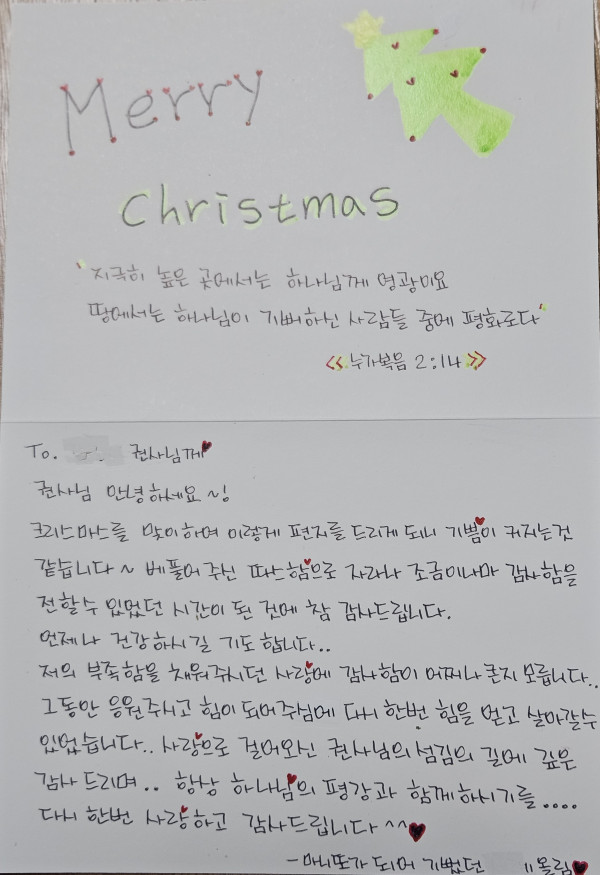 Merry
Christmas
"지극히 높은 곳에서는 하나님께 영광이요
땅에서는 하나님이 기뻐하신 사람들 중에 평화로다"
<<누가복음 2:14>>
To. 권사님께♥
권사님 안녕하세요~!
크리스마스를 맞이하여 이렇게 편지를 드리게 되니 기쁨이 커지는것
같습니다~ 베풀어 주신 따스함으로 자라나 조금이나마 감사함을
전할수 있었던 시간이 된 것에 참 감사드립니다.
언제나 건강하시길 기도 합니다..
저의 부족함을 채워주시던 사랑에 감사함이 어찌나 큰지 모릅니다..
그동안 응원주시고 힘이 되어주심에 다시 한번 힘을 얻고 살아갈수
있었습니다.. 사랑으로 걸어오신 권사님의 섬김의 길에 깊은
감사 드리며.. 항상 하나님의 평강과 함께하시기를....
다시 한번 사랑하고 감사드립니다^^♥
-마니또가 되어 기뻤던 올림♥